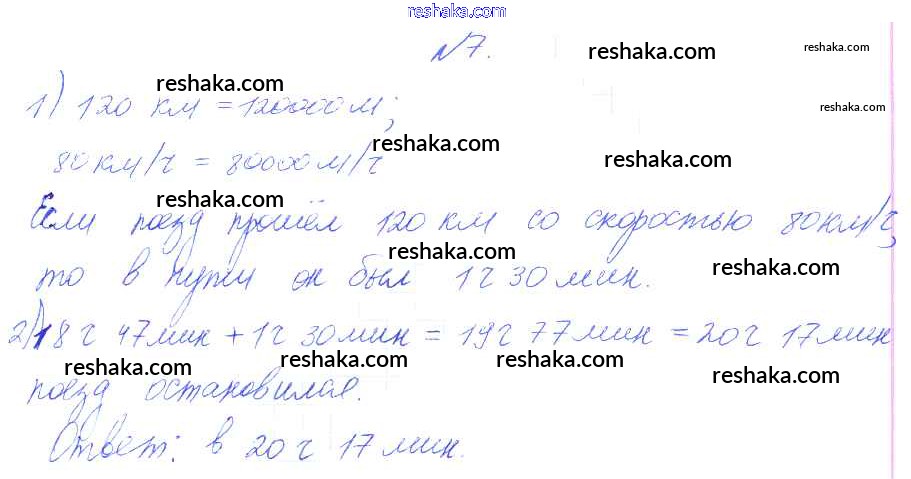 reshaka.com
№7.
reshaka.com
reshaka.com
reshaka.com
1) 120 км = 120000 м;
reshaka.com
reshaka.com
reshaka.com
80 км/ч = 80000 м/ч
reshaka.com
Если поезд прошёл 120 км со скоростью 80 км/ч,
reshaka.com
reshaka.com
то в пути он был 1 ч 30 мин.
2) 18 ч 47 мин + 1 ч 30 мин = 19 ч 77 мин = 20 ч 17 мин
reshaka.com
reshaka.com
reshaka.com
reshaka.com
поезд остановился.
Ответ: в 20 ч 17 мин.
reshaka.com
reshaka.com